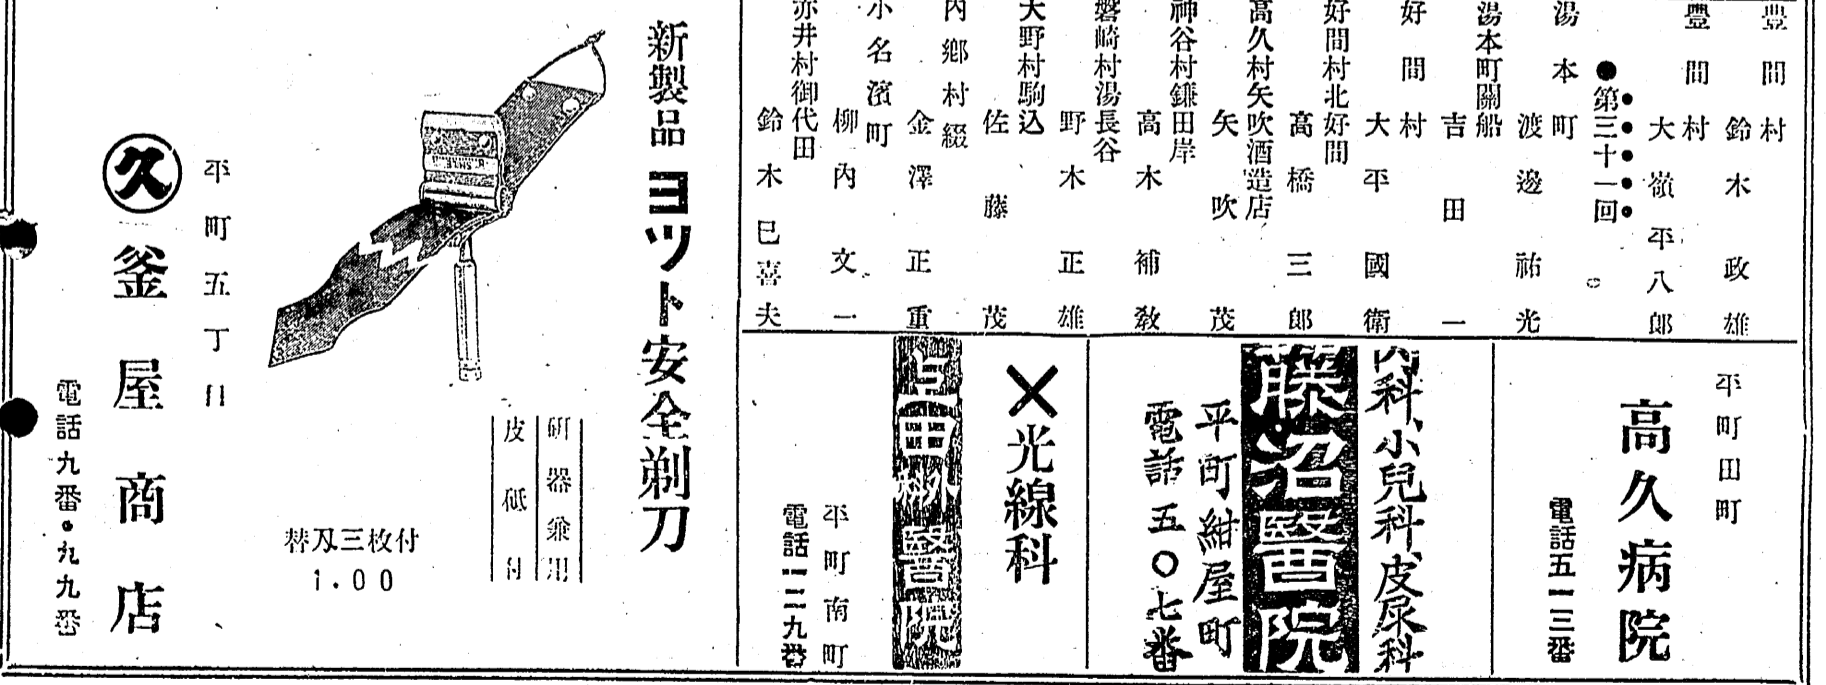 豐間村
鈴木政雄
豐間村
大嶺平八郎
●第三十一回
湯本町
渡邊祐光
湯本町關船
吉田一
好間村
大平國衛
好間村北好間
高橋三郎
高久村矢吹酒造店
矢吹茂
神谷村鎌田岸
高木補敎
磐崎村湯長谷
野木正雄
大野村駒込
佐藤茂
內鄕村綴
金澤正重
小名濱町
柳內文一
赤井村御代田
鈴木巳喜夫
平町田町
高久病院
電話五一三番
內科、小兒科、皮尿科
藤沼醫院
平町紺屋町
電話五〇七番
X光線科
醫院
平町南町
電話一二九番
新製品 ヨット安全剃刀
研器兼用
皮砥付
替刄三枚付
1.00
平町五丁目
久 釜屋商店
電話九番・九九番